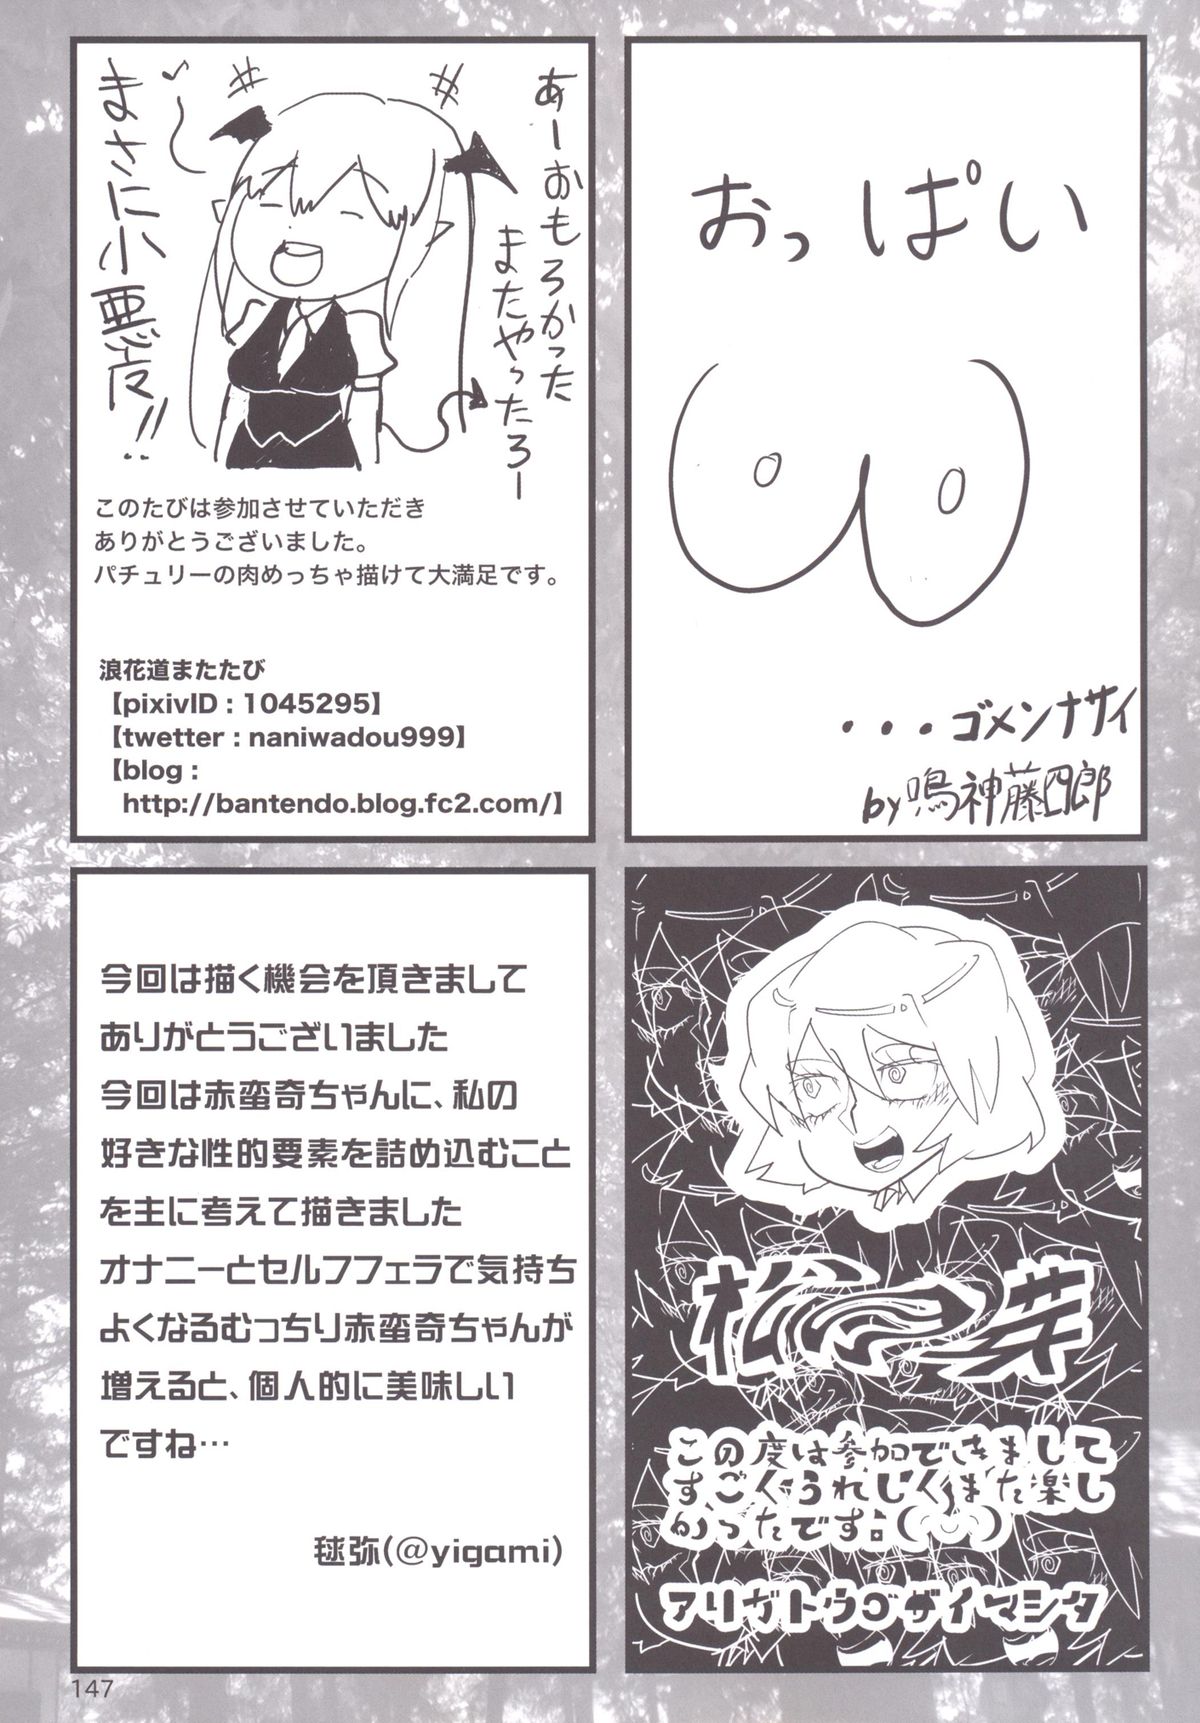 おっぱい
・・・ゴメンナサイ
by鳴神藤四郎
あーおもろかった
またやったろー
まさに小悪魔!!
このたびは参加させていただき
ありがとうございました。
パチュリーの肉めっちゃ描けて大満足です。
浪花道またたび
【pixivID : 1045295】
【twetter : naniwadou999】
【blog :
http://bantendo.blog.fc2.com/】
松の芽
この度は参加できまして
すごくうれしく、また楽し
かったです:(´◡`)
アリガトウゴザイマシタ
今回は描く機会を頂きまして
ありがとうございました
今回は赤蛮奇ちゃんに、私の
好きな性的要素を詰め込むこと
を主に考えて描きました
オナニーとセルフフェラで気持ち
よくなるむっちり赤蛮奇ちゃんが
増えると、個人的に美味しい
ですね…
毬弥(@yigami)
147